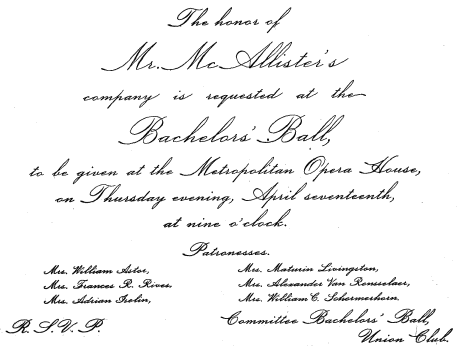 The honor of
Mr. McAllister's
company is requested at the
Bachelors' Ball,
to be given at the Metropolitan Opera House,
on Thursday evening, April seventeenth,
at nine o'clock.
Patronesses.
Mrs. William Astor,
Mrs. Frances R. Rives.
Mrs. Adrian Iselin,
Mrs. Maturin Livingston,
Mrs. Alexander Van Rensselaer,
Mrs. William C. Schermerhorn.
R.S.V.P.
Committee Bachelors' Ball,
Union Club.